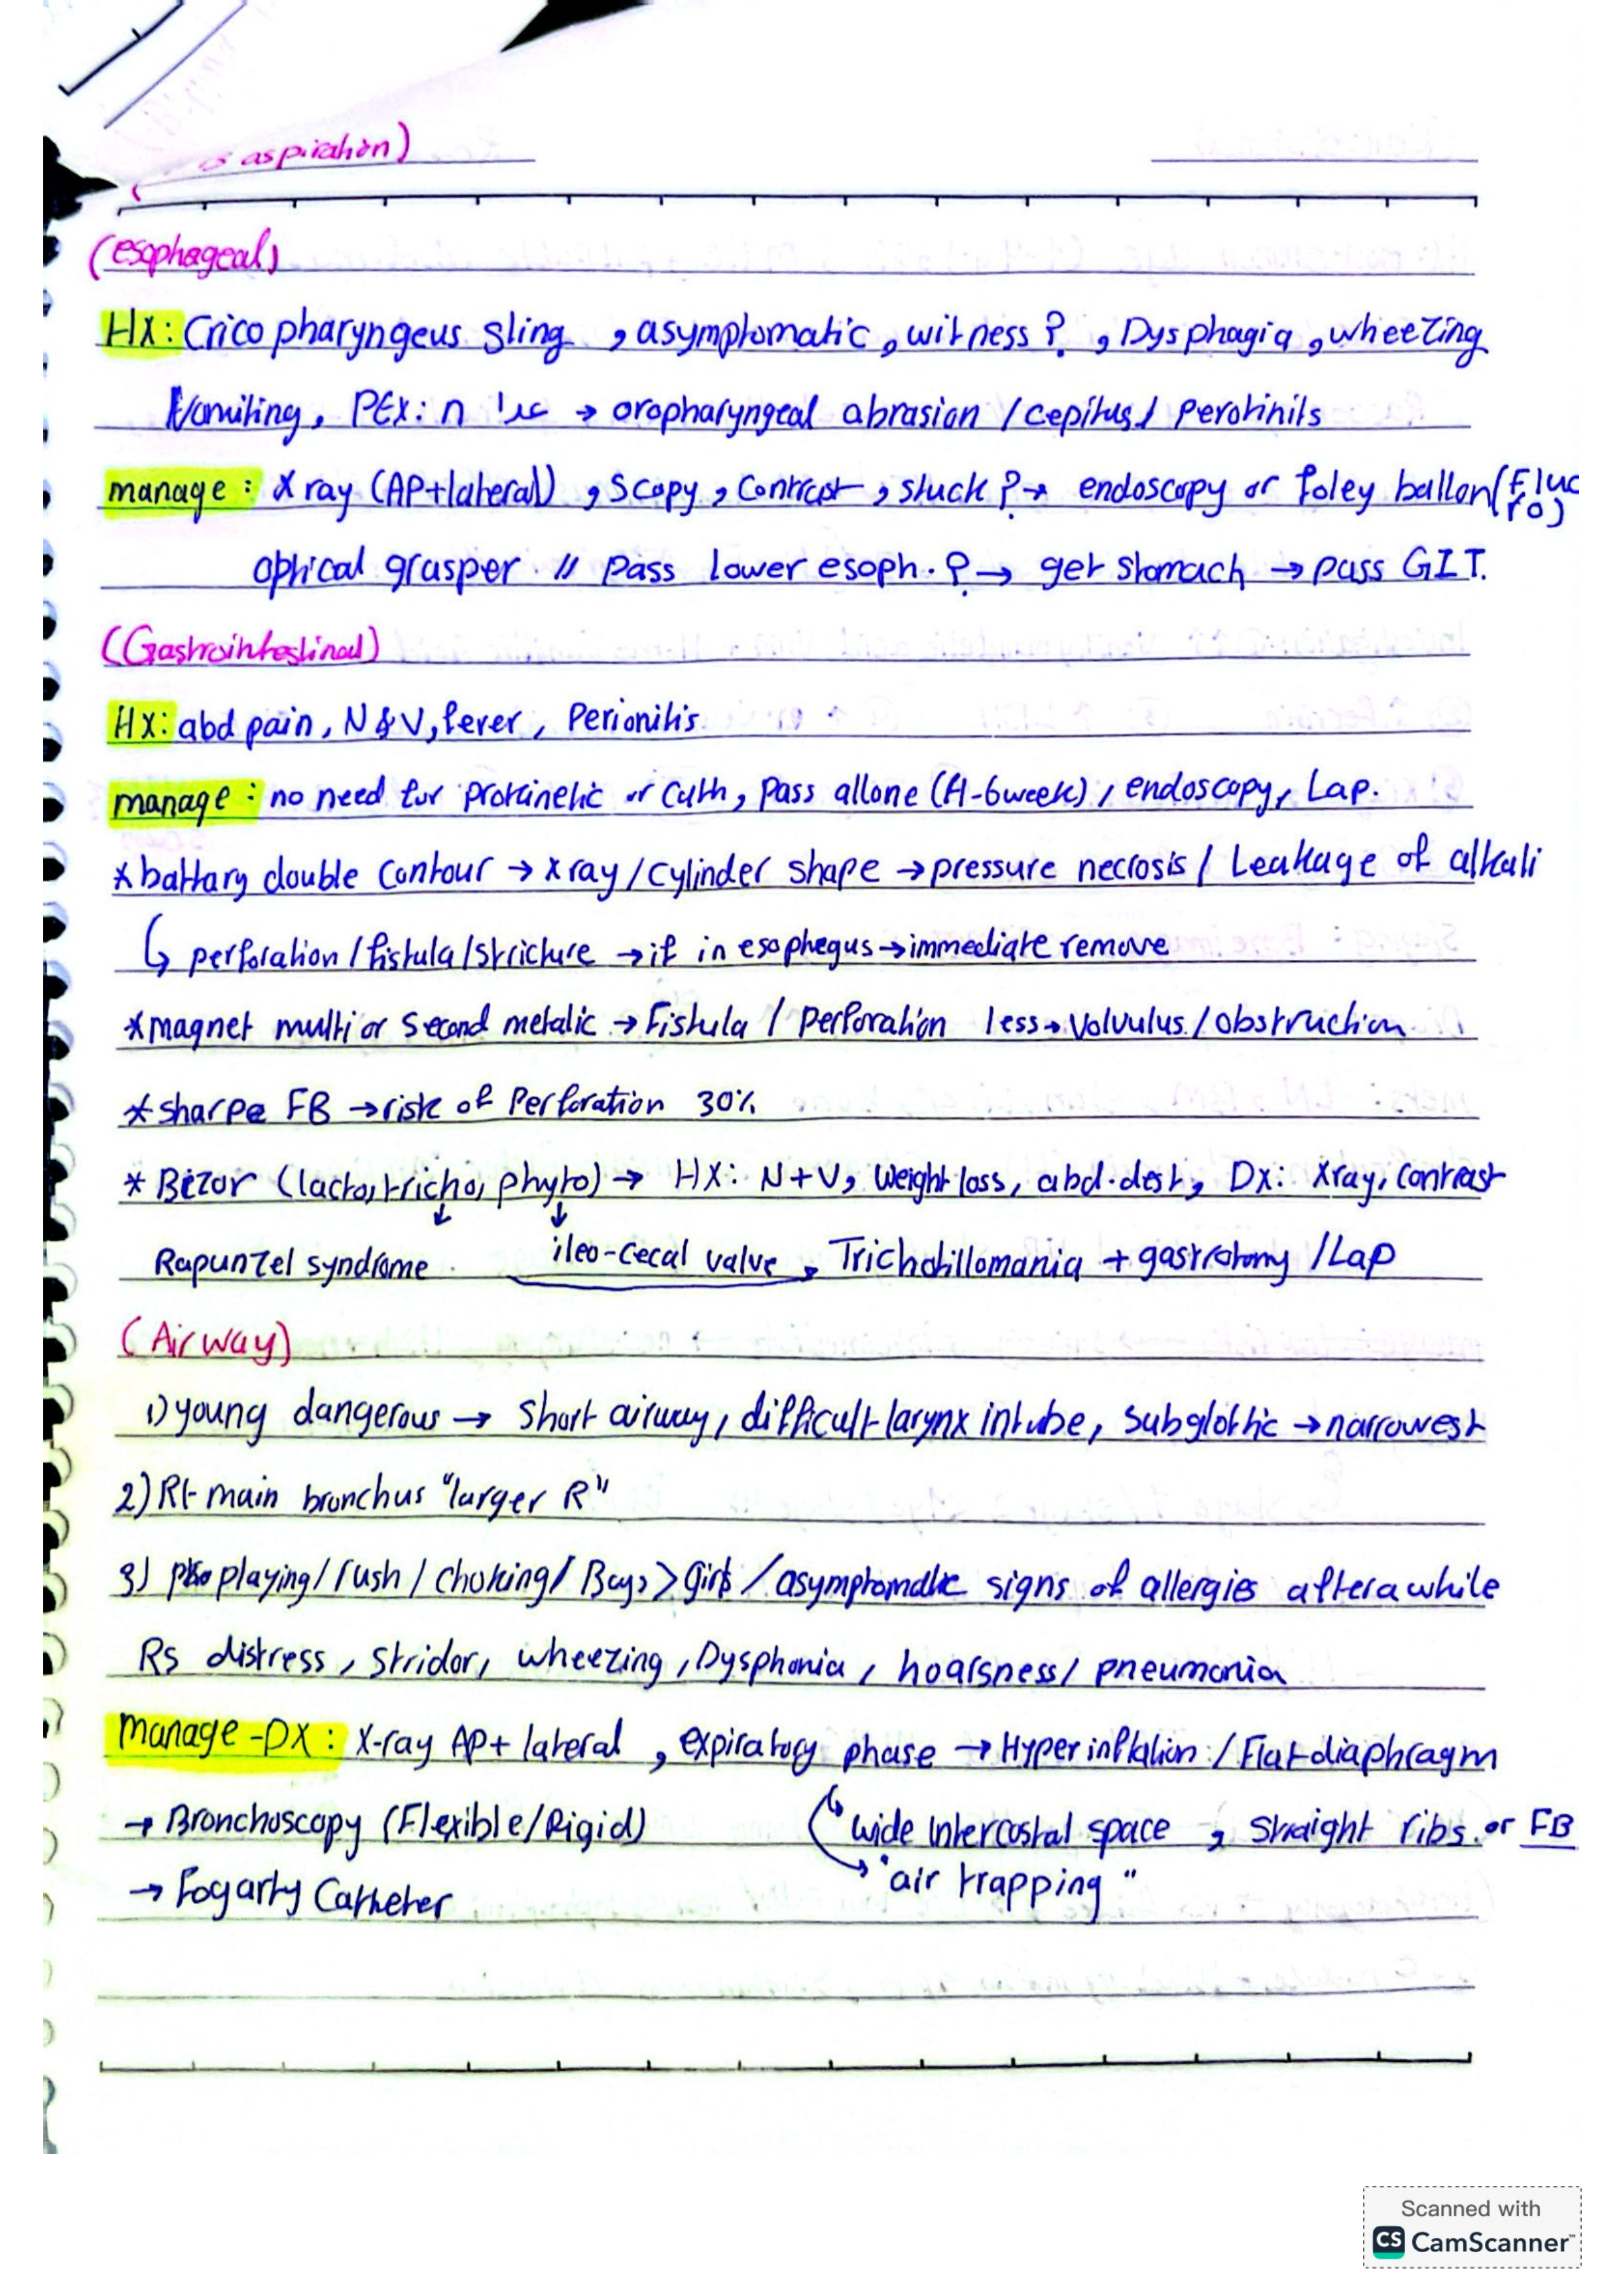 aspiration)
(esophageal)
Hx: Crico pharyngeus sling , asymptomatic , witness ? , Dysphagia , wheezing
Vomiting , PEx: n → oropharyngeal abrasion / cepitus / perotinits
manage : X ray (AP+lateral) , Scopy , Contrast , stuck ? → endoscopy or foley ballon (Fluo
ro)
optical grasper // pass lower esoph. ? → get stomach → pass GIT.
(Gastrointestinal)
Hx: abd pain , N & V, fever , Perionitis
manage : no need for prokinetic or Cath, pass allone (4-6week) , endoscopy, Lap.
* battary double contour → x ray / Cylinder shape → pressure necrosis / Leakage of alkali
↳ perforation / fistula / stricture → if in esophegus → immediate remove
* magnet multi or second metalic → Fistula / perforation less → volvulus / obstruction
* sharpe FB → risk of Perforation 30%
* Bezor (lacto, tricho, phyto) → HX: N + V, weight loss, abd. dest, Dx: Xray, contrast
Rapunzel syndrome ileo-cecal valve Trichotillomania + gastrotomy / Lap
(Airway)
1) young dangerous → short airway, difficult larynx intube, subglottic → narrowest
2) Rt main bronchus "larger R"
3) playing / rush / choking / Boys > girls / asymptomatic signs of allergies after a while
Rs distress , stridor, wheezing , Dysphonia , hoarsness / pneumonia
manage - DX : X-ray AP + lateral , expiratory phase → Hyperinflation / Flat diaphragm
→ Bronchoscopy (Flexible/Rigid) wide intercostal space , straight ribs. or FB
→ Fogarty Catheter "air trapping"
Scanned with
CS CamScanner™